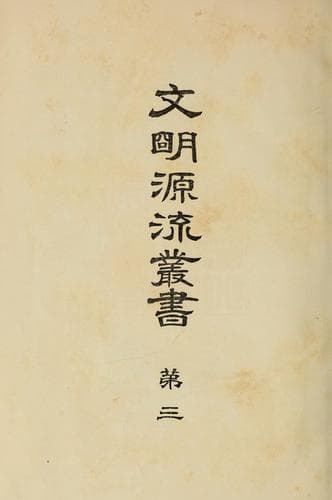 文明源流叢書
第三